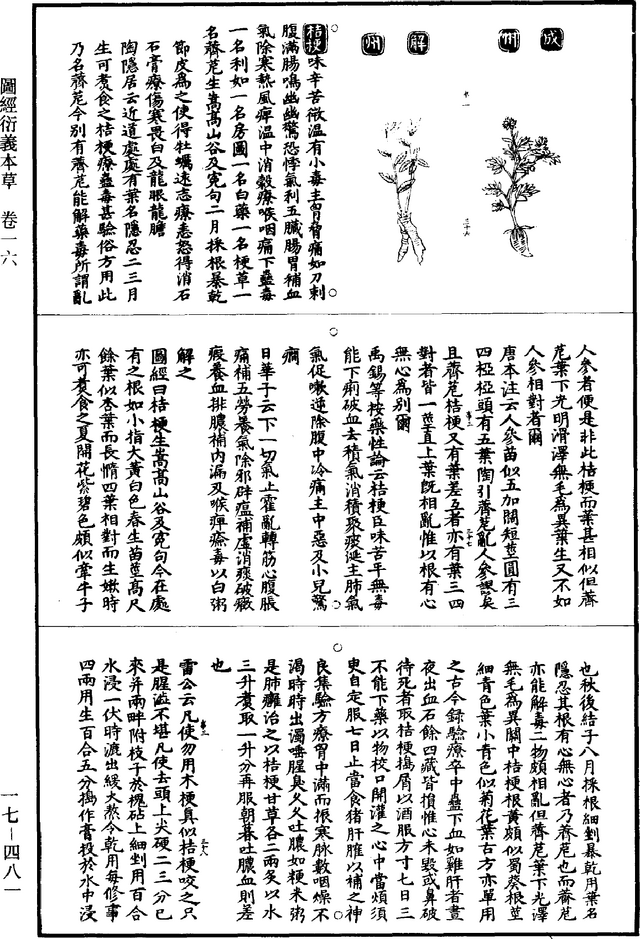 圖經衍義本草　卷一六
一七－四八一
成州
解州
桔梗味辛苦微溫有小毒主胷脅痛如刀刺
腹滿腸鳴幽幽驚恐悸氣利五臟腸胃補血
氣除寒熱風痺溫中消穀療喉咽痛下蠱毒
一名利如一名房圖一名白藥一名梗草一
名薺苨生嵩高山谷及寃句二月採根暴乾
節皮為之使得牡蠣遠志療恚怒得消石
石膏療傷寒畏白及龍眼龍膽
陶隱居云近道處處有葉名隱忍二三月
生可煑食之桔梗療蠱毒甚驗俗方用此
乃名薺苨今別有薺苨能解藥毒所謂亂
人參者便是非此桔梗而葉甚相似但薺
苨葉下光明滑澤無毛為異葉生又不如
人參相對者爾
唐本注云人參苗似五加闊短莖圓有三
四椏椏頭有五葉陶引薺苨亂人參謬矣
且薺苨桔梗又有葉差互者亦有葉三四
對者皆一莖直上葉旣相亂惟以根有心
無心為別爾
禹錫等按藥性論云桔梗臣味苦平無毒
能下痢破血去積氣消積聚痰涎主肺氣
氣促嗽逆除腹中冷痛主中惡及小兒驚
癇
日華子云下一切氣止霍亂轉筋心腹脹
痛補五勞養氣除邪辟瘟補虛消痰破癥
瘕養血排膿補內漏及喉痺療毒以白粥
解之
圖經曰桔梗生嵩高山谷及寃句今在處
有之根如小指大黃白色春生苗莖高尺
餘葉似杏葉而長惰四葉相對而生嫩時
亦可煑食之夏開花紫碧色頗似牽牛子
也秋後結子八月採根細剉暴乾用葉名
隱忍其根有心無心者乃薺苨也而薺苨
亦能解毒二物頗相亂但薺苨葉下光澤
無毛為異關中桔梗根黃頗似蜀葵根莖
細青色葉小青色似菊花葉古方亦單用
之古今錄驗療卒中蠱下血如雞肝者晝
夜出血石餘四藏皆損惟心未毀或鼻破
待死者取桔梗搗屑以酒服方寸匕日三
不能下藥以物校口開灌之心中當煩須
臾自定服七日止當食猪肝臛以補之神
良集驗方療胷中滿而根寒脉數咽燥不
渴時時出濁唾腥臭久久吐膿如粳米粥
是肺癰治之以桔梗甘草各二兩炙以水
三升煑取一升分再服朝暮吐膿血則差
也
雷公云凡使勿用木梗真似桔梗咬之只
是腥澁不堪凡使去頭上尖硬二三分已
來并兩畔附枝子於槐砧上細剉用百合
水浸一伏時漉出緩火熬令乾用每修事
四兩用生百合五分搗作膏投於水中浸